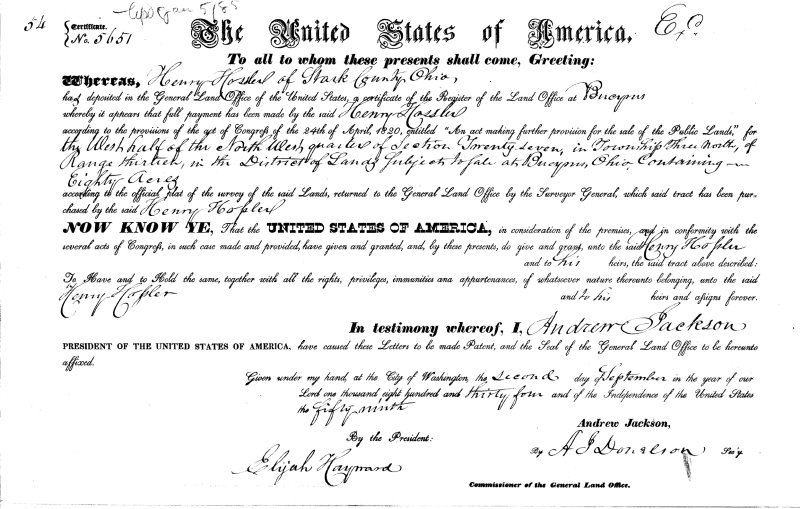 54 Certificate. No. 5651
The United States of America,
To all to whom these presents shall come, Greeting:
Whereas, Henry Hossler of Stark County, Ohio,
has deposited in the General Land Office of the United States, a certificate of the Register of the Land Office at Bucyrus
whereby it appears that full payment has been made by the said Henry Hossler
according to the provisions of the act of Congress of the 24th of April, 1820, entitled "An act making further provision for the sale of the Public Lands," for
the West half of the North West quarter of Section Twenty seven, in Township Three North, of
Range thirteen, in the District of Lands Subject to sale at Bucyrus, Ohio, Containing
Eighty Acres
according to the official plat of the survey of the said Lands, returned to the General Land Office by the Surveyor General, which said tract has been pur-
chased by the said Henry Hossler
NOW KNOW YE, That the UNITED STATES OF AMERICA, in consideration of the premises, and in conformity with the
several acts of Congress, in such case made and provided, have given and granted, and, by these presents, do give and grant, unto the said Henry Hossler
and to his heirs, the said tract above described:
To Have and to Hold the same, together with all the rights, privileges, immunities and appurtenances, of whatsoever nature thereunto belonging, unto the said
Henry Hossler and to his heirs and assigns forever.
In testimony whereof, I, Andrew Jackson
PRESIDENT OF THE UNITED STATES OF AMERICA, have caused these Letters to be made Patent, and the Seal of the General Land Office to be hereunto
affixed.
Given under my hand, at the City of Washington, the second day of September in the year of our
Lord one thousand eight hundred and thirty four and of the Independence of the United States
the fifty ninth
Andrew Jackson,
By the President:
By A J Donelson Sec'y.
Elijah Hayward
Commissioner of the General Land Office.